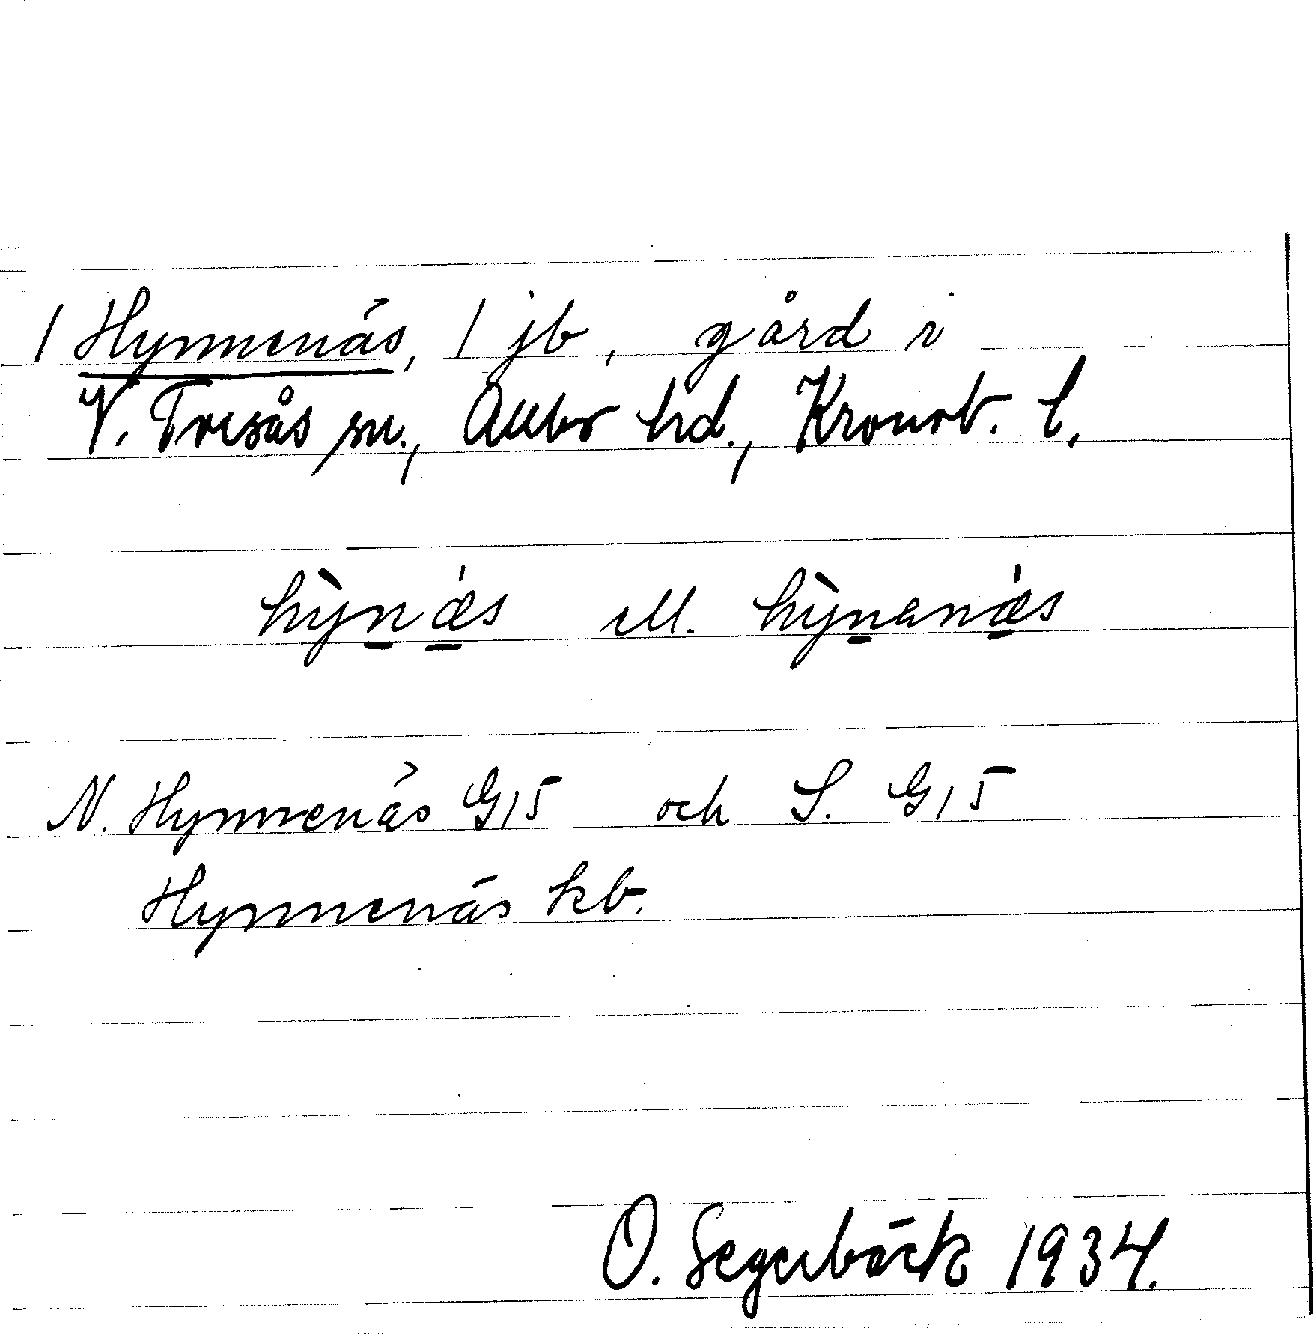 1 Hynnenäs, 1 jb, gård i
V. Torsås sn., Allbo hd., Kronob. l.
hỳnǽs ell. hỳnenǽs
N. Hynnenäs G15 och S. G15
Hynnenäs kb.
O. Segerbäck 1934.